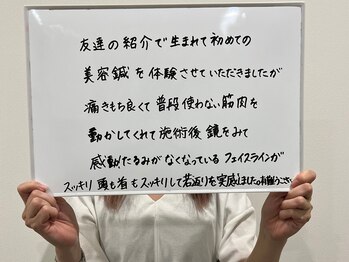 友達の紹介で生まれて初めての
美容鍼を体験させていただきましたが
痛きもち良くて普段使わない筋肉を
動かしてくれて施術後鏡をみて
感動たるみがなくなっているフェイスラインが
スッキリ頭も首もスッキリして若返りを実感しました。有難うござい